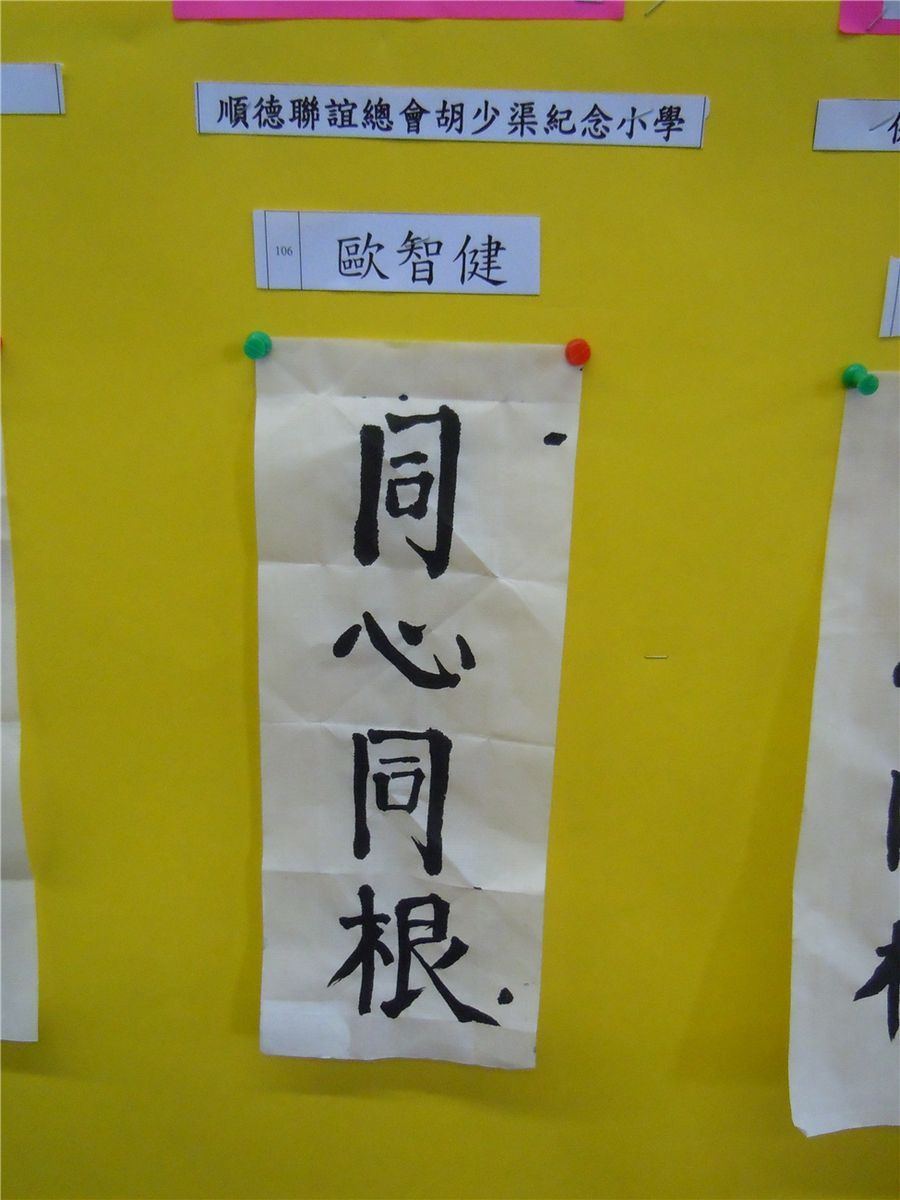 順德聯誼總會胡少渠紀念小學
106 歐智健
同心同根